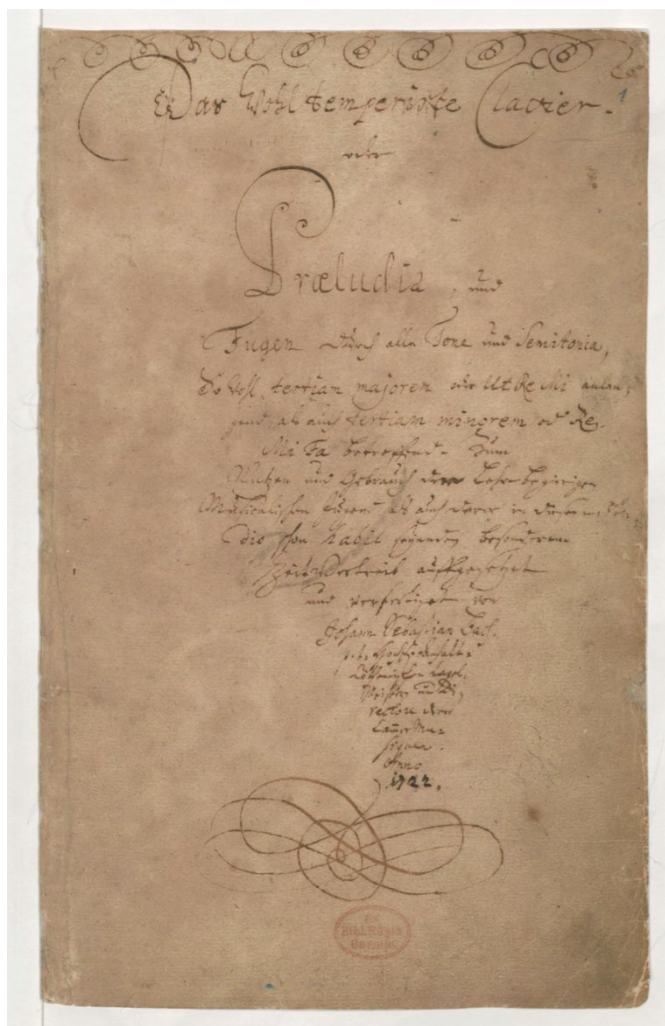 Das Wohltemperirte Clavier.
oder
Præludia, und
Fugen durch alle Tone und Semitonia,
So wohl tertiam majorem oder Ut Re Mi anlan-
gend, als auch tertiam minorem oder Re
Mi Fa betreffend. Zum
Nutzen und Gebrauch der Lehrbegierigen
Musicalischen Jugend, als auch derer in diesem stu-
dio schon habil seyenden besonderem
Zeitvertreib auffgesetzet
und verfertiget von
Johann Sebastian Bach.
p. t. Hochfürstlich
Cöthenischen Capel-
Meistern und Di-
rectore derer
Cammer Mu-
siquen.
Anno
1722.
1